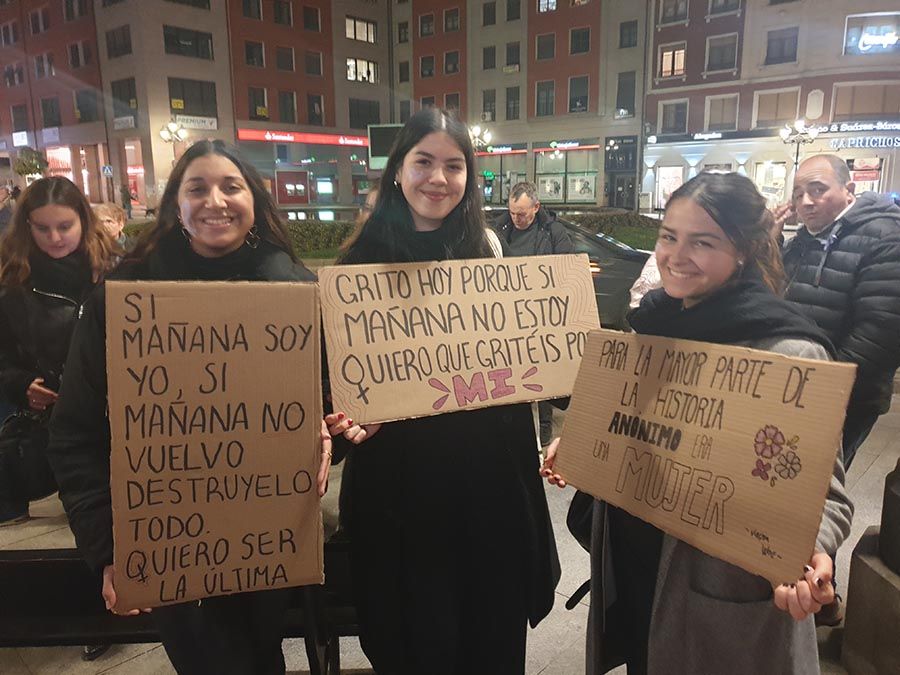 SI
MAÑANA SOY
YO, SI
MAÑANA NO
VUELVO
DESTRUYELO
TODO.
QUIERO SER
LA ÚLTIMA
GRITO HOY PORQUE SI
MAÑANA NO ESTOY
QUIERO QUE GRITÉIS POR
MI
PARA LA MAYOR PARTE DE
LA HISTORIA
ANÓNIMO ERA
UNA MUJER
PREMIUM
Santander
CAPRICHOS